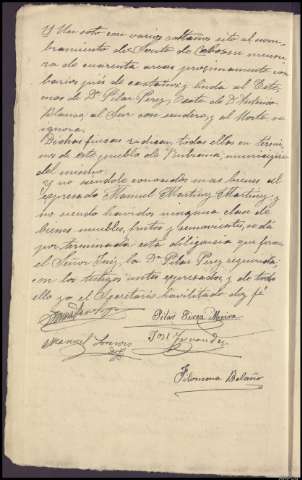 y Un soto con varios castaños sito al nom-
bramiento de Soute de Cobasa mensu-
ra de cuarenta areas proximamente con
barios piés de castaños y linda al Este,
mas de Dª Pilar Perez, Oeste de D. Antonio
Blanco, al Sur con sendero, y al Norte se
ignora.
Dichas fincas radican todas ellas en térmi-
nos de este pueblo de municipio
del mismo.
Y no siendole conocidos mas bienes al
expresado Manuel Martinez Martinez y
no siendo habidos ninguna clase de
bienes muebles, frutos y semovientes, se dá
por terminada esta diligencia que firma
el Señor Juez, la Dª Pilar Perez requirida
con los testigos antes expresados y de todo
ello yo el Secretario habilitado doy fé
Pilar Perez
Manuel José Fernandez
Filomena Bolaño